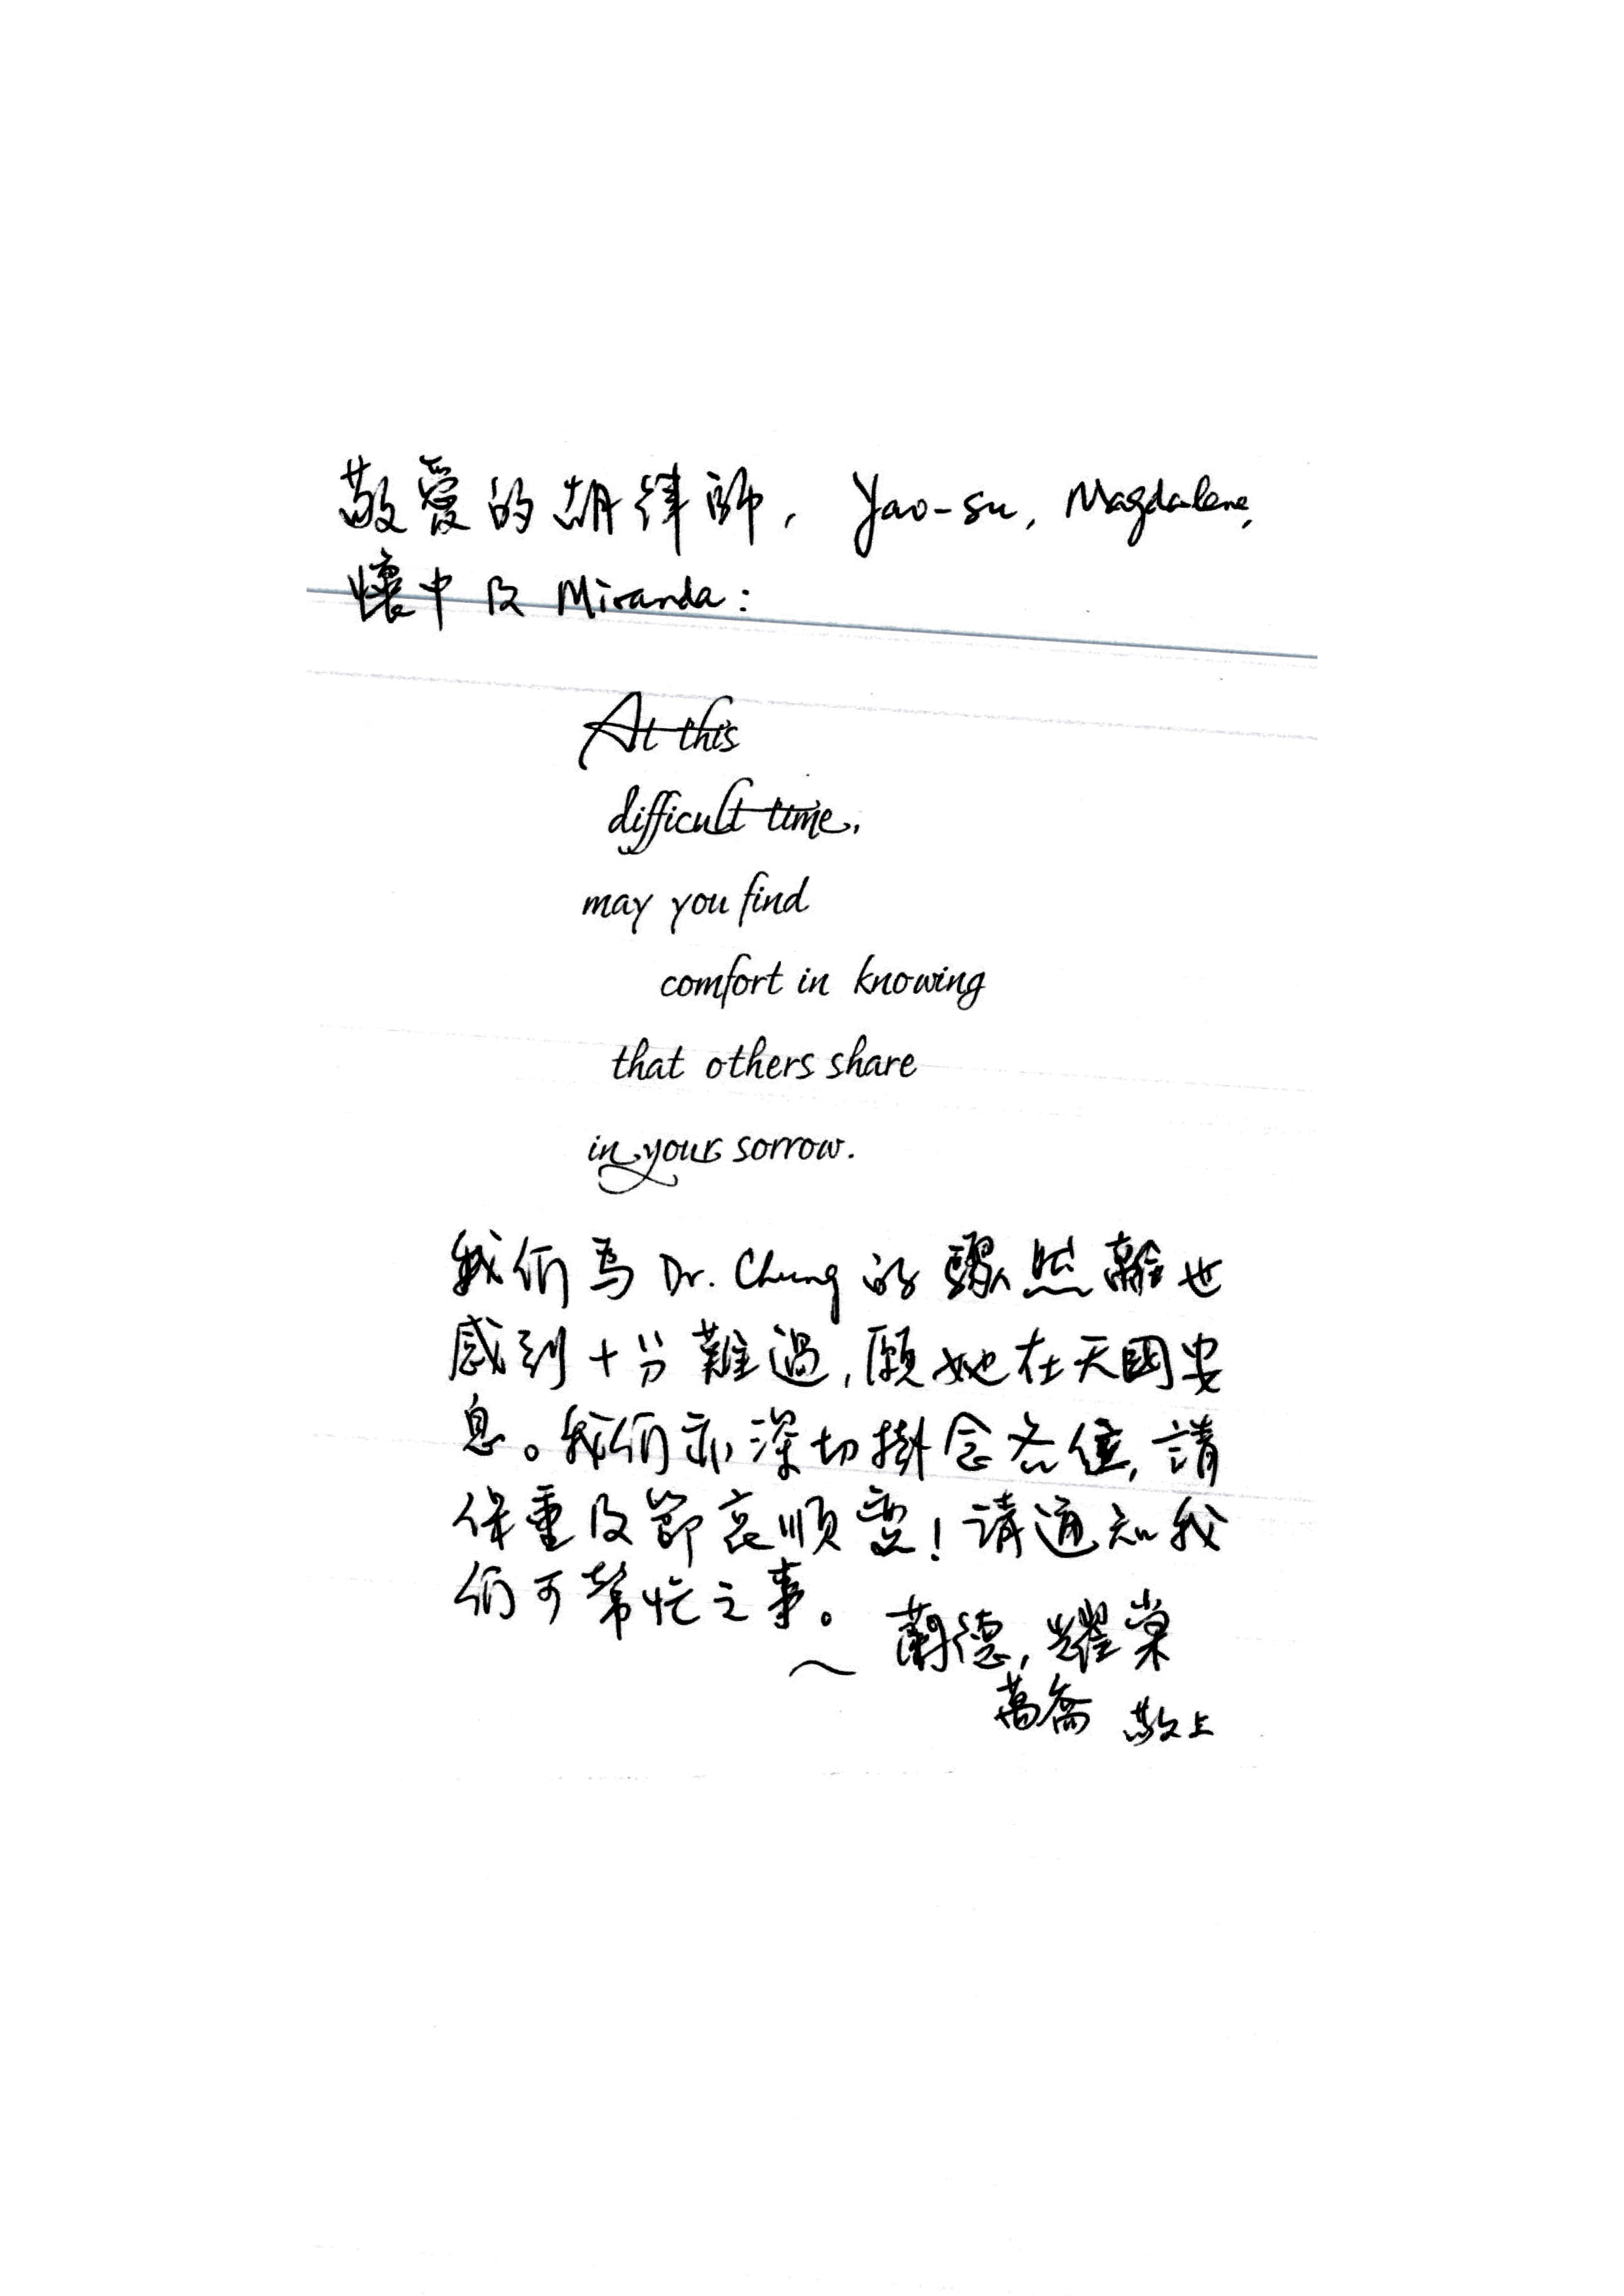 敬愛的胡律師, Yao-su, Magdalene,
懷中及 Miranda:
At this
difficult time,
may you find
comfort in knowing
that others share
in your sorrow.
我们為 Dr. Chung 的驟然離世
感到十分難過,願她在天國安
息。我们亦深切掛念各位,請
保重及節哀順變!請通知我
们可幫忙之事。
~ 蘭德,耀棠
萬喬 敬上